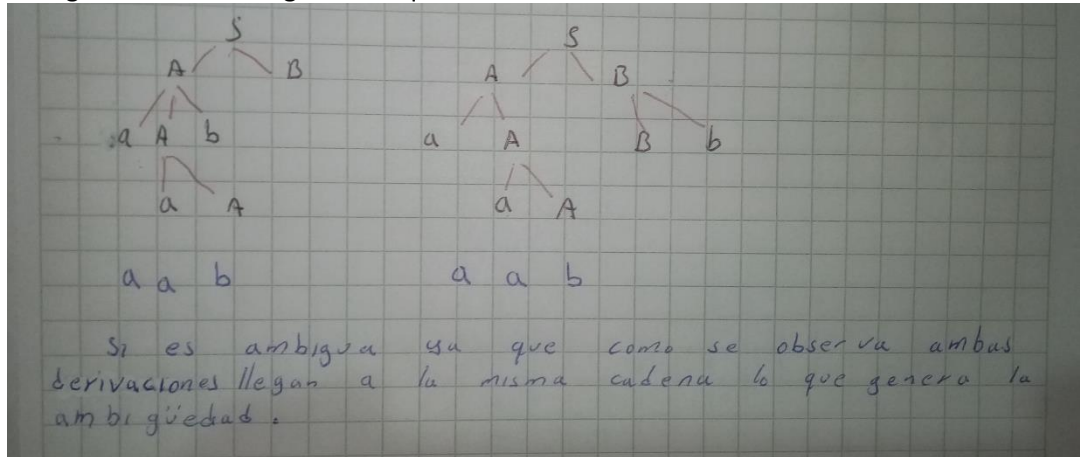 S S
A B A B
a A b a A B b
a A a A
a a b a a b
Si es ambigua ya que como se observa ambas
derivaciones llegan a la misma cadena lo que genera la
ambigüedad.